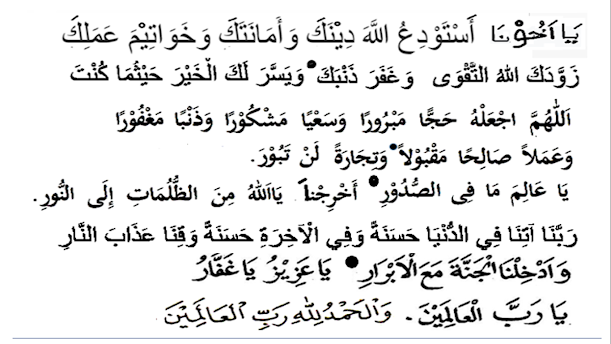 يَا اَخُوْنَا أَسْتَوْدِعُ اللهَ دِيْنَكَ وَأَمَانَتَكَ وَخَوَاتِيْمَ عَمَلِكَ
زَوَّدَكَ اللهُ التَّقْوَى وَغَفَرَ ذَنْبَكَ • وَيَسَّرَ لَكَ الْخَيْرَ حَيْثُمَا كُنْتَ
اَللّٰهُمَّ اجْعَلْهُ حَجًّا مَبْرُورًا وَسَعْيًا مَشْكُوْرًا وَذَنْبًا مَغْفُوْرًا
وَعَمَلاً صَالِحًا مَقْبُوْلاً • وَتِجَارَةً لَنْ تَبُوْرَ.
يَا عَالِمَ مَا فِى الصُّدُوْرِ • أَخْرِجْنَا يَااَللهُ مِنَ الظُّلُمَاتِ إِلَى النُّورِ.
رَبَّنَا آتِنَا فِي الدُّنْيَا حَسَنَةً وَفِي الْاٰخِرَةِ حَسَنَةً وَقِنَا عَذَابَ النَّارِ
وَادْخِلْنَا الْجَنَّةَ مَعَ الْاَبْرَارِ • يَا عَزِيْزُ يَا غَفَّارُ
يَا رَبَّ الْعَالَمِيْنَ. وَالْحَمْدُ لِلّٰهِ رَبِّ الْعَالَمِيْنَ